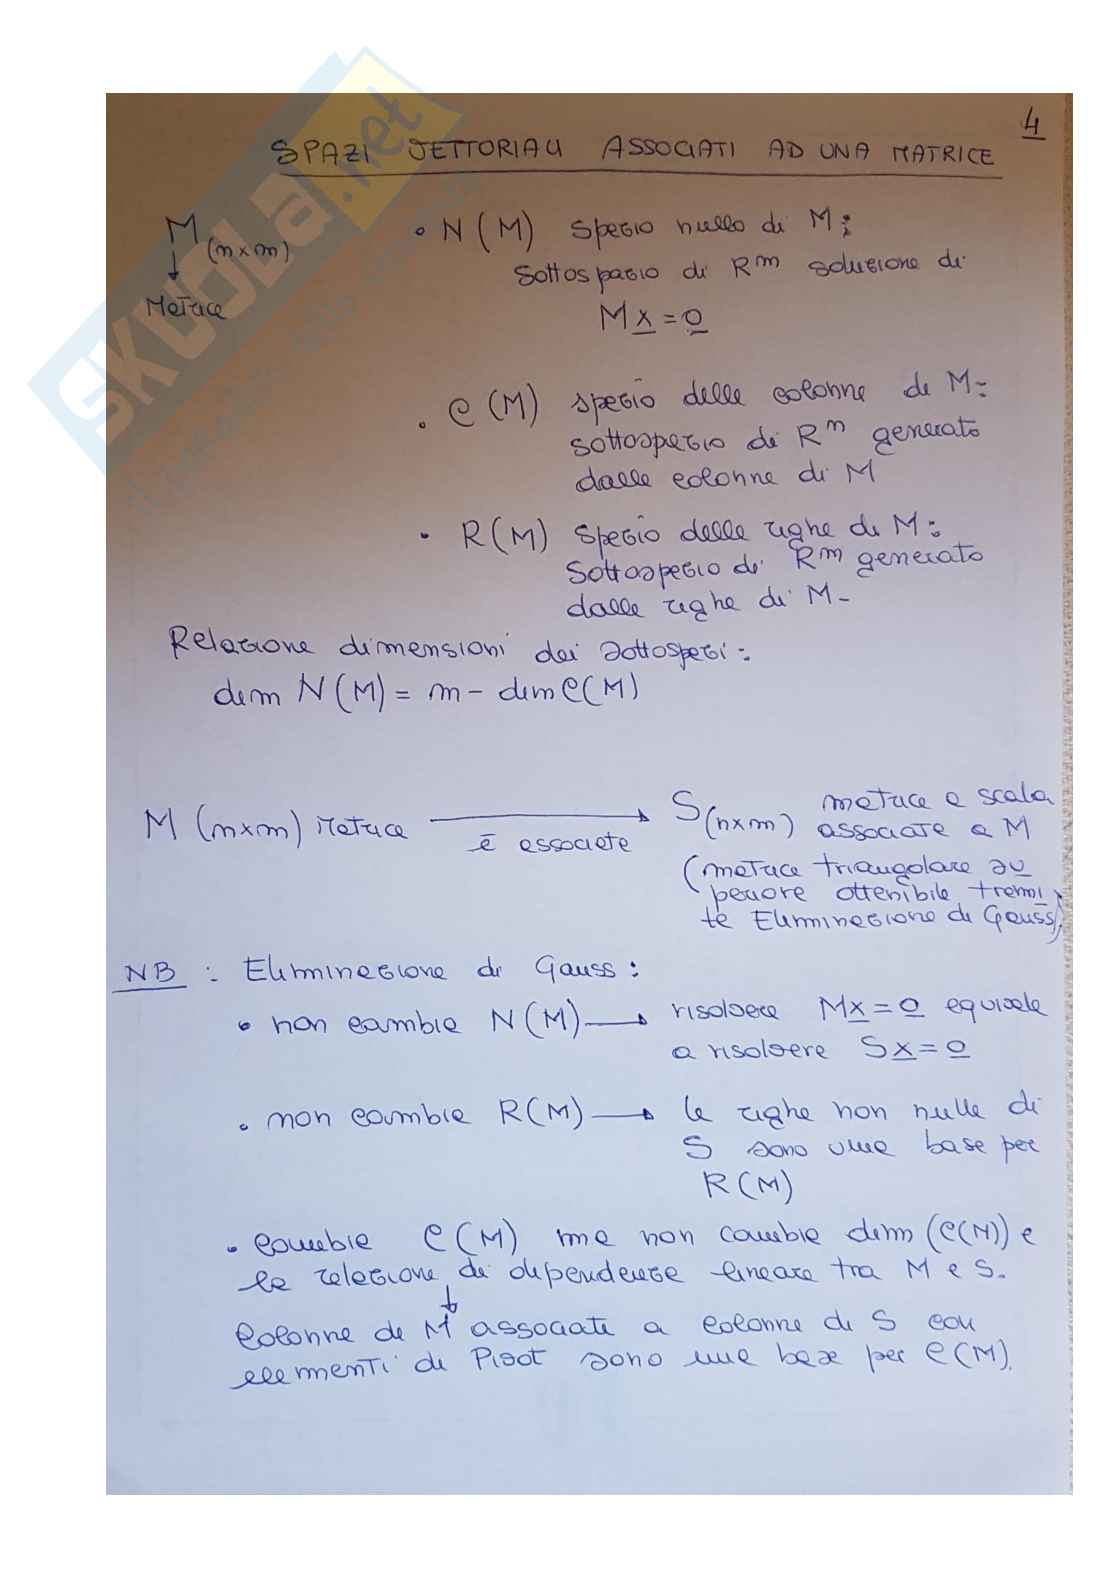 4
SPAZI VETTORIALI ASSOCIATI AD UNA MATRICE
M(n×m)
↓
Matrice
• N(M) spazio nullo di M:
sottospazio di R^m soluzione di
Mx = 0
• C(M) spazio delle colonne di M:
sottospazio di R^n generato
dalle colonne di M
• R(M) spazio delle righe di M:
sottospazio di R^m generato
dalle righe di M-
Relazione dimensioni dei sottospazi:
dim N(M) = m - dim C(M)
M (n×m) Matrice → è associata
S(n×m) matrice a scala
associata a M
(matrice triangolare su
periore ottenibile trami
te Eliminazione di Gauss)
NB : Eliminazione di Gauss:
• non cambia N(M) → risolvere Mx = 0 equivale
a risolvere Sx = 0
• non cambia R(M) → le righe non nulle di
S sono una base per
R(M)
• cambia C(M) ma non cambia dim (C(M)) e
la relazione di dipendenza lineare tra M e S.
↓
Colonne di M associate a colonne di S con
elementi di Pivot sono una base per C(M).
SKUOLA.net